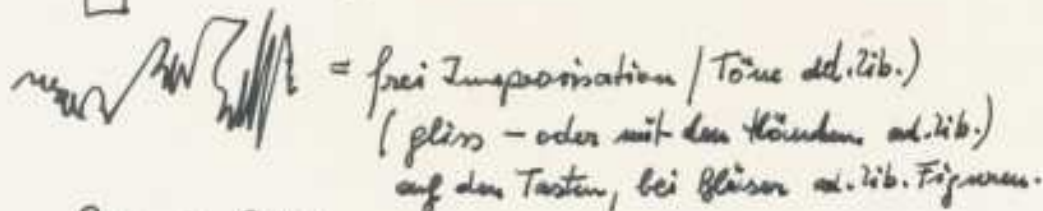 = frei Improvisation / Töne ad. lib.)
( gliss – oder mit den Händen ad. lib.)
auf den Tasten, bei Bläser ad. lib. Figuren.